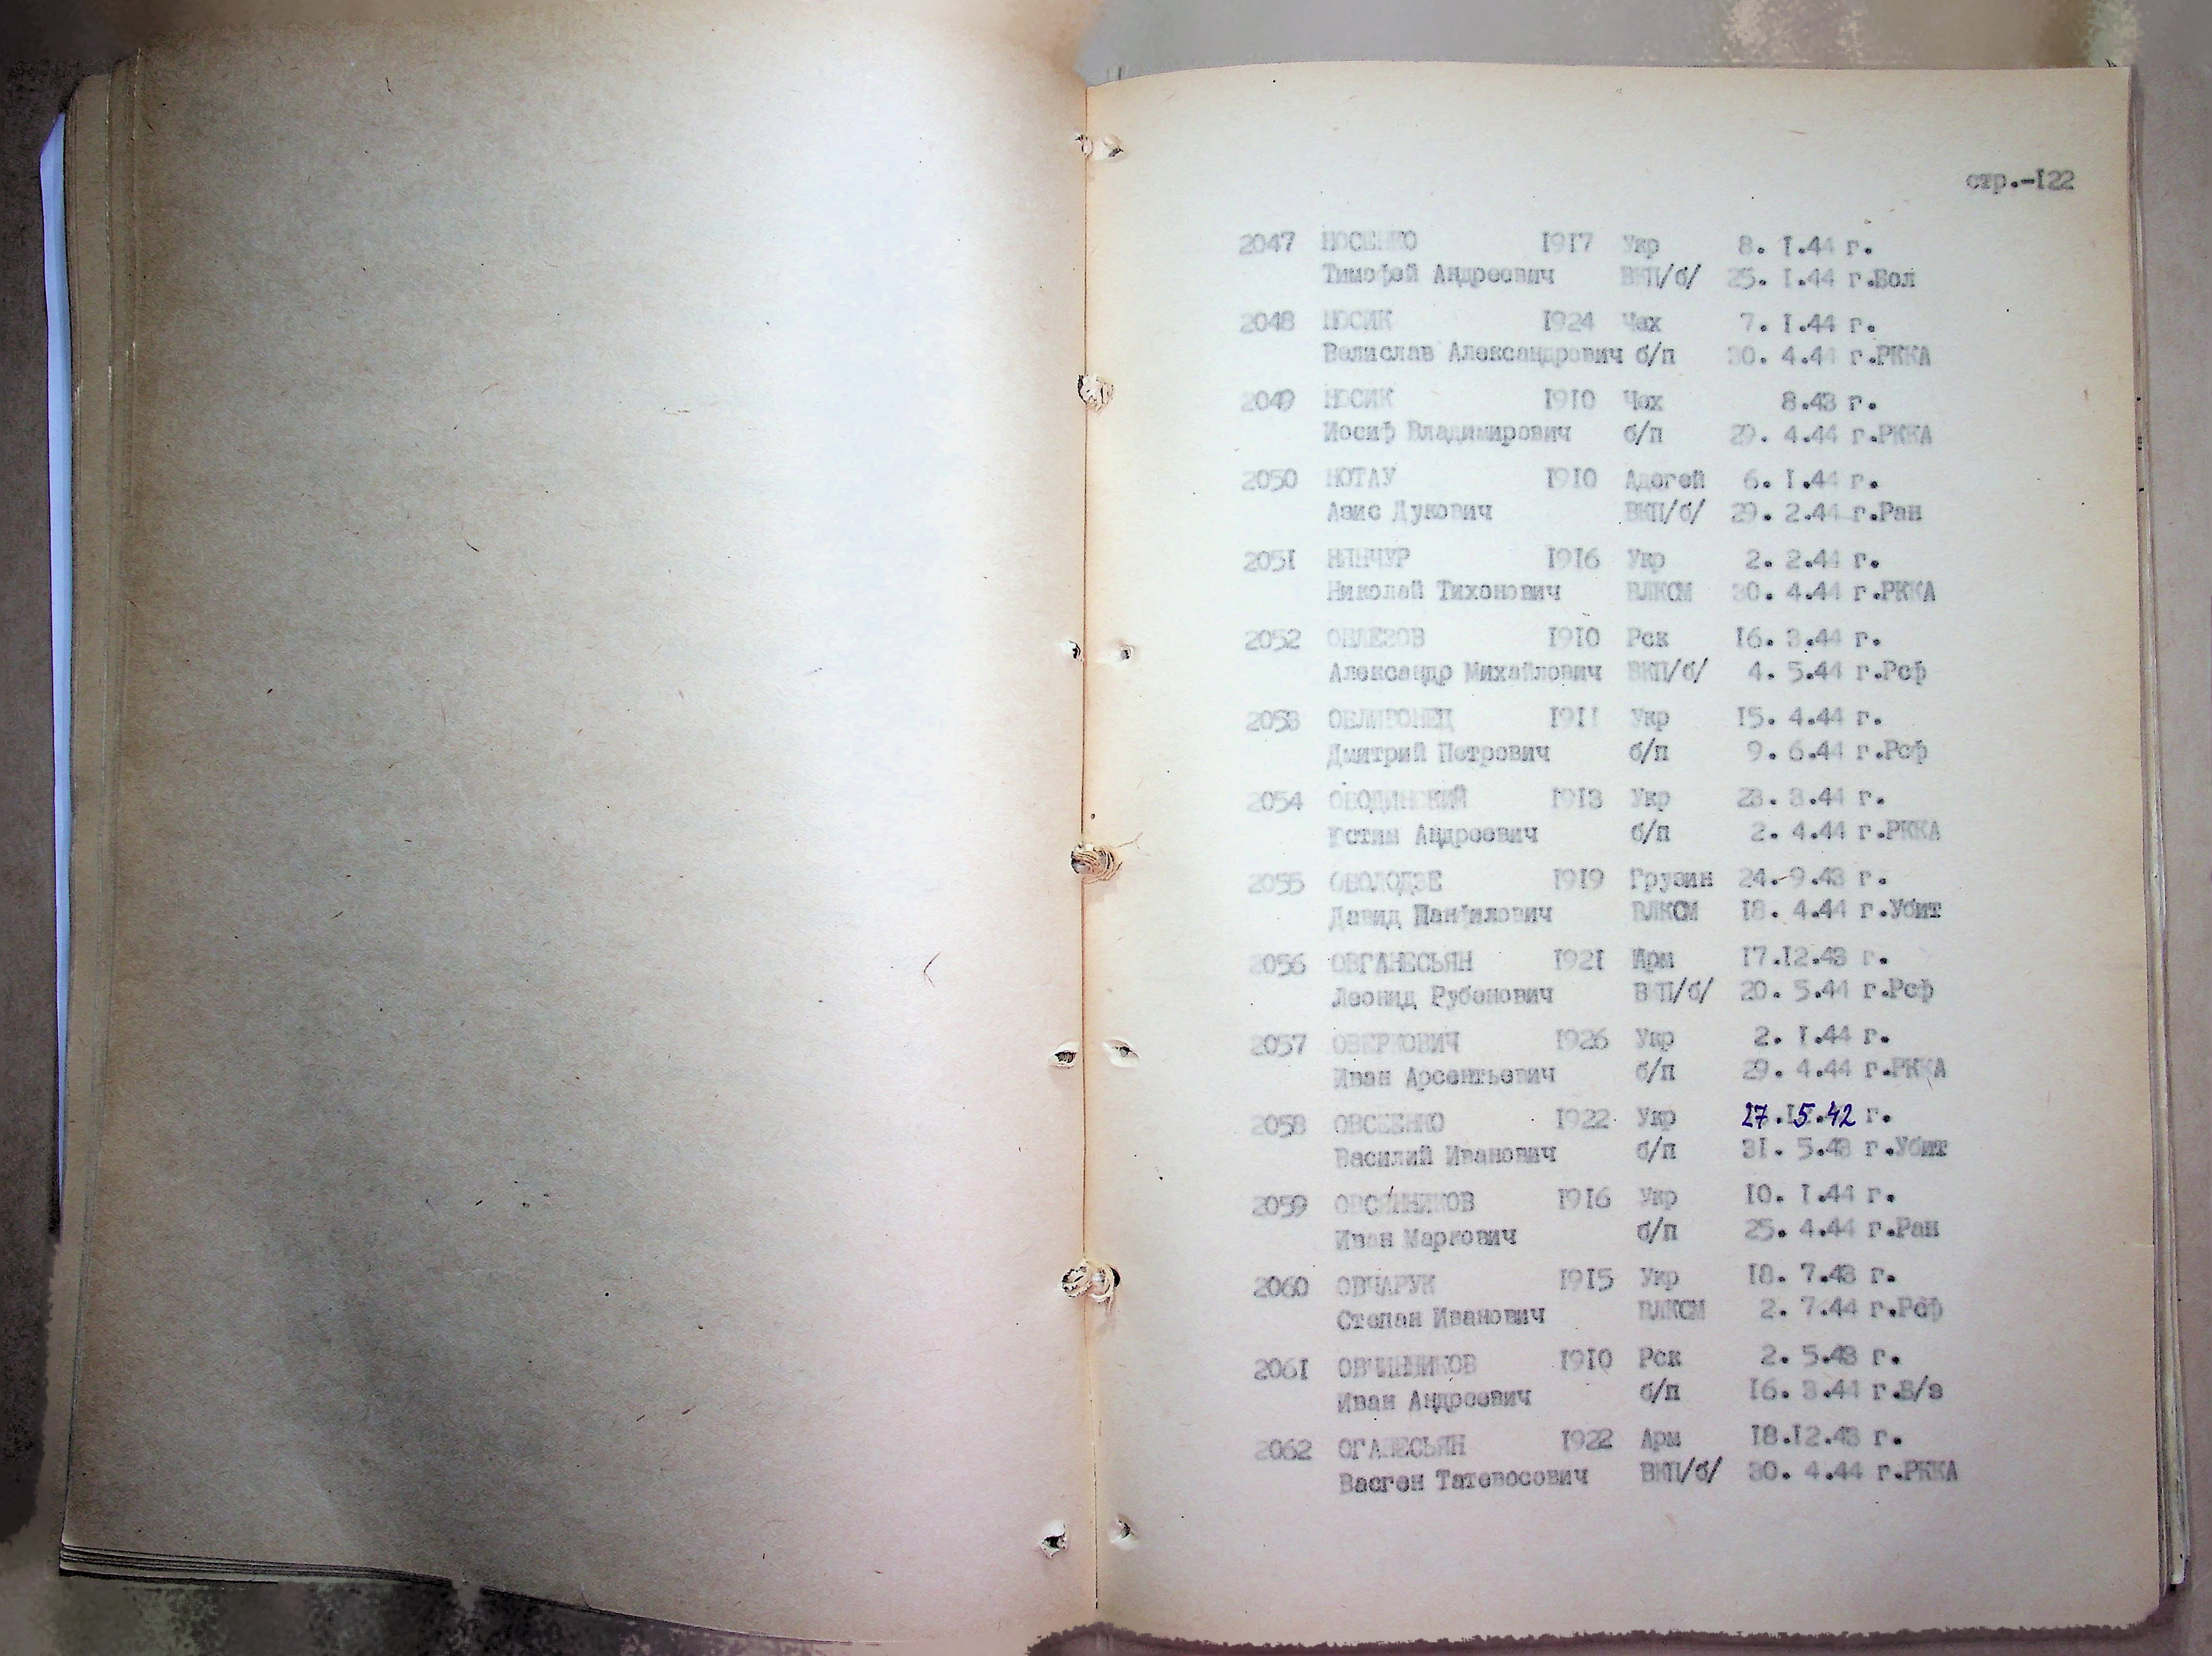 стр.-122
2047 НОСЕНКО 1917 Укр 8. 1.44 г.
Тимофей Андреевич ВКП/б/ 25. 1.44 г.Вол
2048 НОСИК 1924 Чех 7. 1.44 г.
Велислав Александрович б/п 30. 4.44 г.РККА
2049 НОСИК 1910 Чех 8.43 г.
Иосиф Владимирович б/п 29. 4.44 г.РККА
2050 НОТАУ 1910 Адегей 6. 1.44 г.
Азис Дукович ВКП/б/ 29. 2.44 г.Ран
2051 1916 Укр 2. 2.44 г.
Николай Тихонович ВЛКСМ 30. 4.44 г.РККА
2052 ОБЛЕЗОВ 1910 Рск 16. 3.44 г.
Александр Михайлович ВКП/б/ 4. 5.44 г.Рсф
2053 1911 Укр 15. 4.44 г.
Дмитрий Петрович б/п 9. 6.44 г.Рсф
2054 ОБОДИНСКИЙ 1913 Укр 23. 3.44 г.
Устим Андреевич б/п 2. 4.44 г.РККА
2055 ОБОЛОДЗЕ 1919 Грузин 24. 9.43 г.
Давид Панфилович ВЛКСМ 18. 4.44 г.Убит
2056 ОВГАНЕСЬЯН 1921 Арм 17.12.43 г.
Леонид Рубенович ВКП/б/ 20. 5.44 г.Рсф
2057 ОВЕРКОВИЧ 1926 Укр 2. 1.44 г.
Иван Арсентьевич б/п 29. 4.44 г.РККА
2058 ОВСЕЕНКО 1922 Укр 27.15.42 г.
Василий Иванович б/п 31. 5.43 г.Убит
2059 ОВСЯННИКОВ 1916 Укр 10. 1.44 г.
Иван Маркович б/п 25. 4.44 г.Ран
2060 ОВЧАРУК 1915 Укр 18. 7.43 г.
Степан Иванович ВЛКСМ 2. 7.44 г.Рсф
2061 ОВЧИННИКОВ 1910 Рск 2. 5.43 г.
Иван Андреевич б/п 16. 3.44 г.Б/з
2062 ОГАНЕСЬЯН 1922 Арм 18.12.43 г.
Васген Татевосович ВКП/б/ 30. 4.44 г.РККА